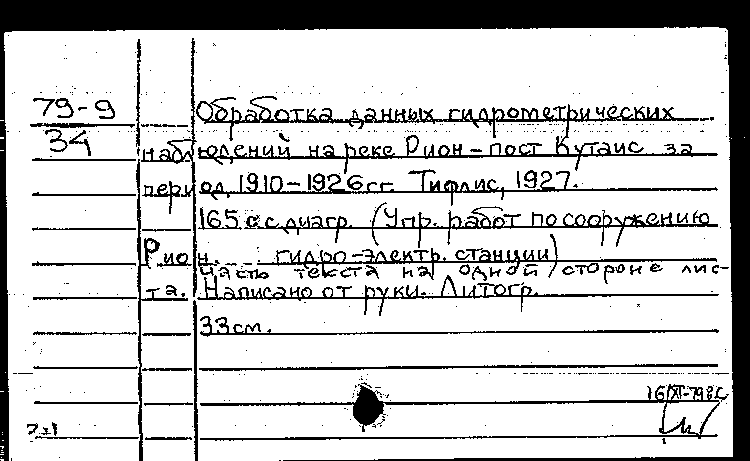 79-9
34
Обработка данных гидрометрических
наблюдений на реке Рион - пост Кутаис за
период 1910-1926 гг. Тифлис, 1927.
165 с. с диагр. (Упр. работ по сооружению
Рион. гидро-электр. станции)
Часть текста на одной стороне лис-
та. Написано от руки. Литогр.
33 см.